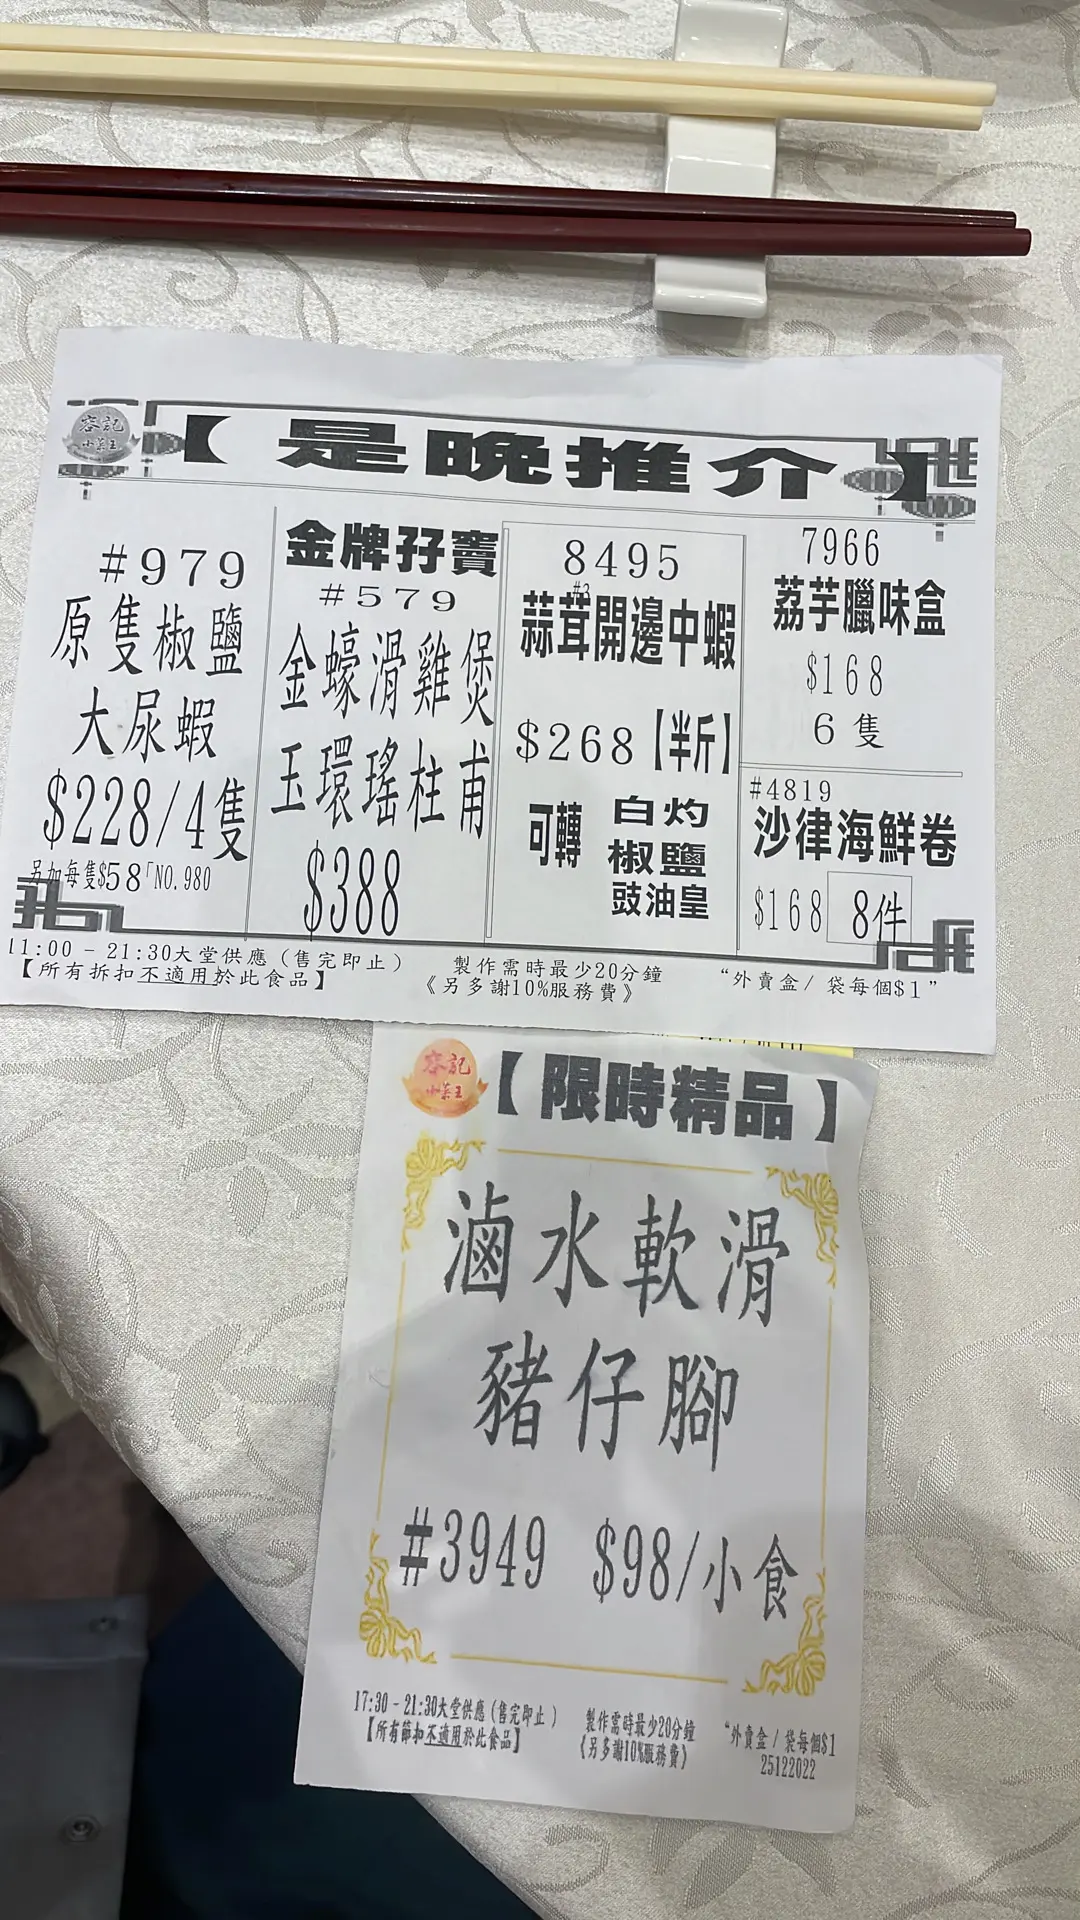 容記
小菜王
【是晚推介】
#979
原隻椒鹽
大尿蝦
$228/4隻
另加每隻$58「NO.980
金牌孖寶
#579
金蠔滑雞煲
玉環瑤柱甫
$388
8495
#3
蒜茸開邊中蝦
$268【半斤】
可轉
白灼
椒鹽
豉油皇
7966
荔芋臘味盒
$168
6隻
#4819
沙律海鮮卷
$168 8件
11:00 - 21:30大堂供應 (售完即止)
【所有折扣不適用於此食品】
製作需時最少20分鐘
《另多謝10%服務費》
“外賣盒/ 袋每個$1”
容記
小菜王
【限時精品】
滷水軟滑
豬仔腳
#3949 $98/小食
17:30 - 21:30大堂供應 (售完即止)
【所有節扣不適用於此食品】
製作需時最少20分鐘
《另多謝10%服務費》
“外賣盒 / 袋每個$1
25122022